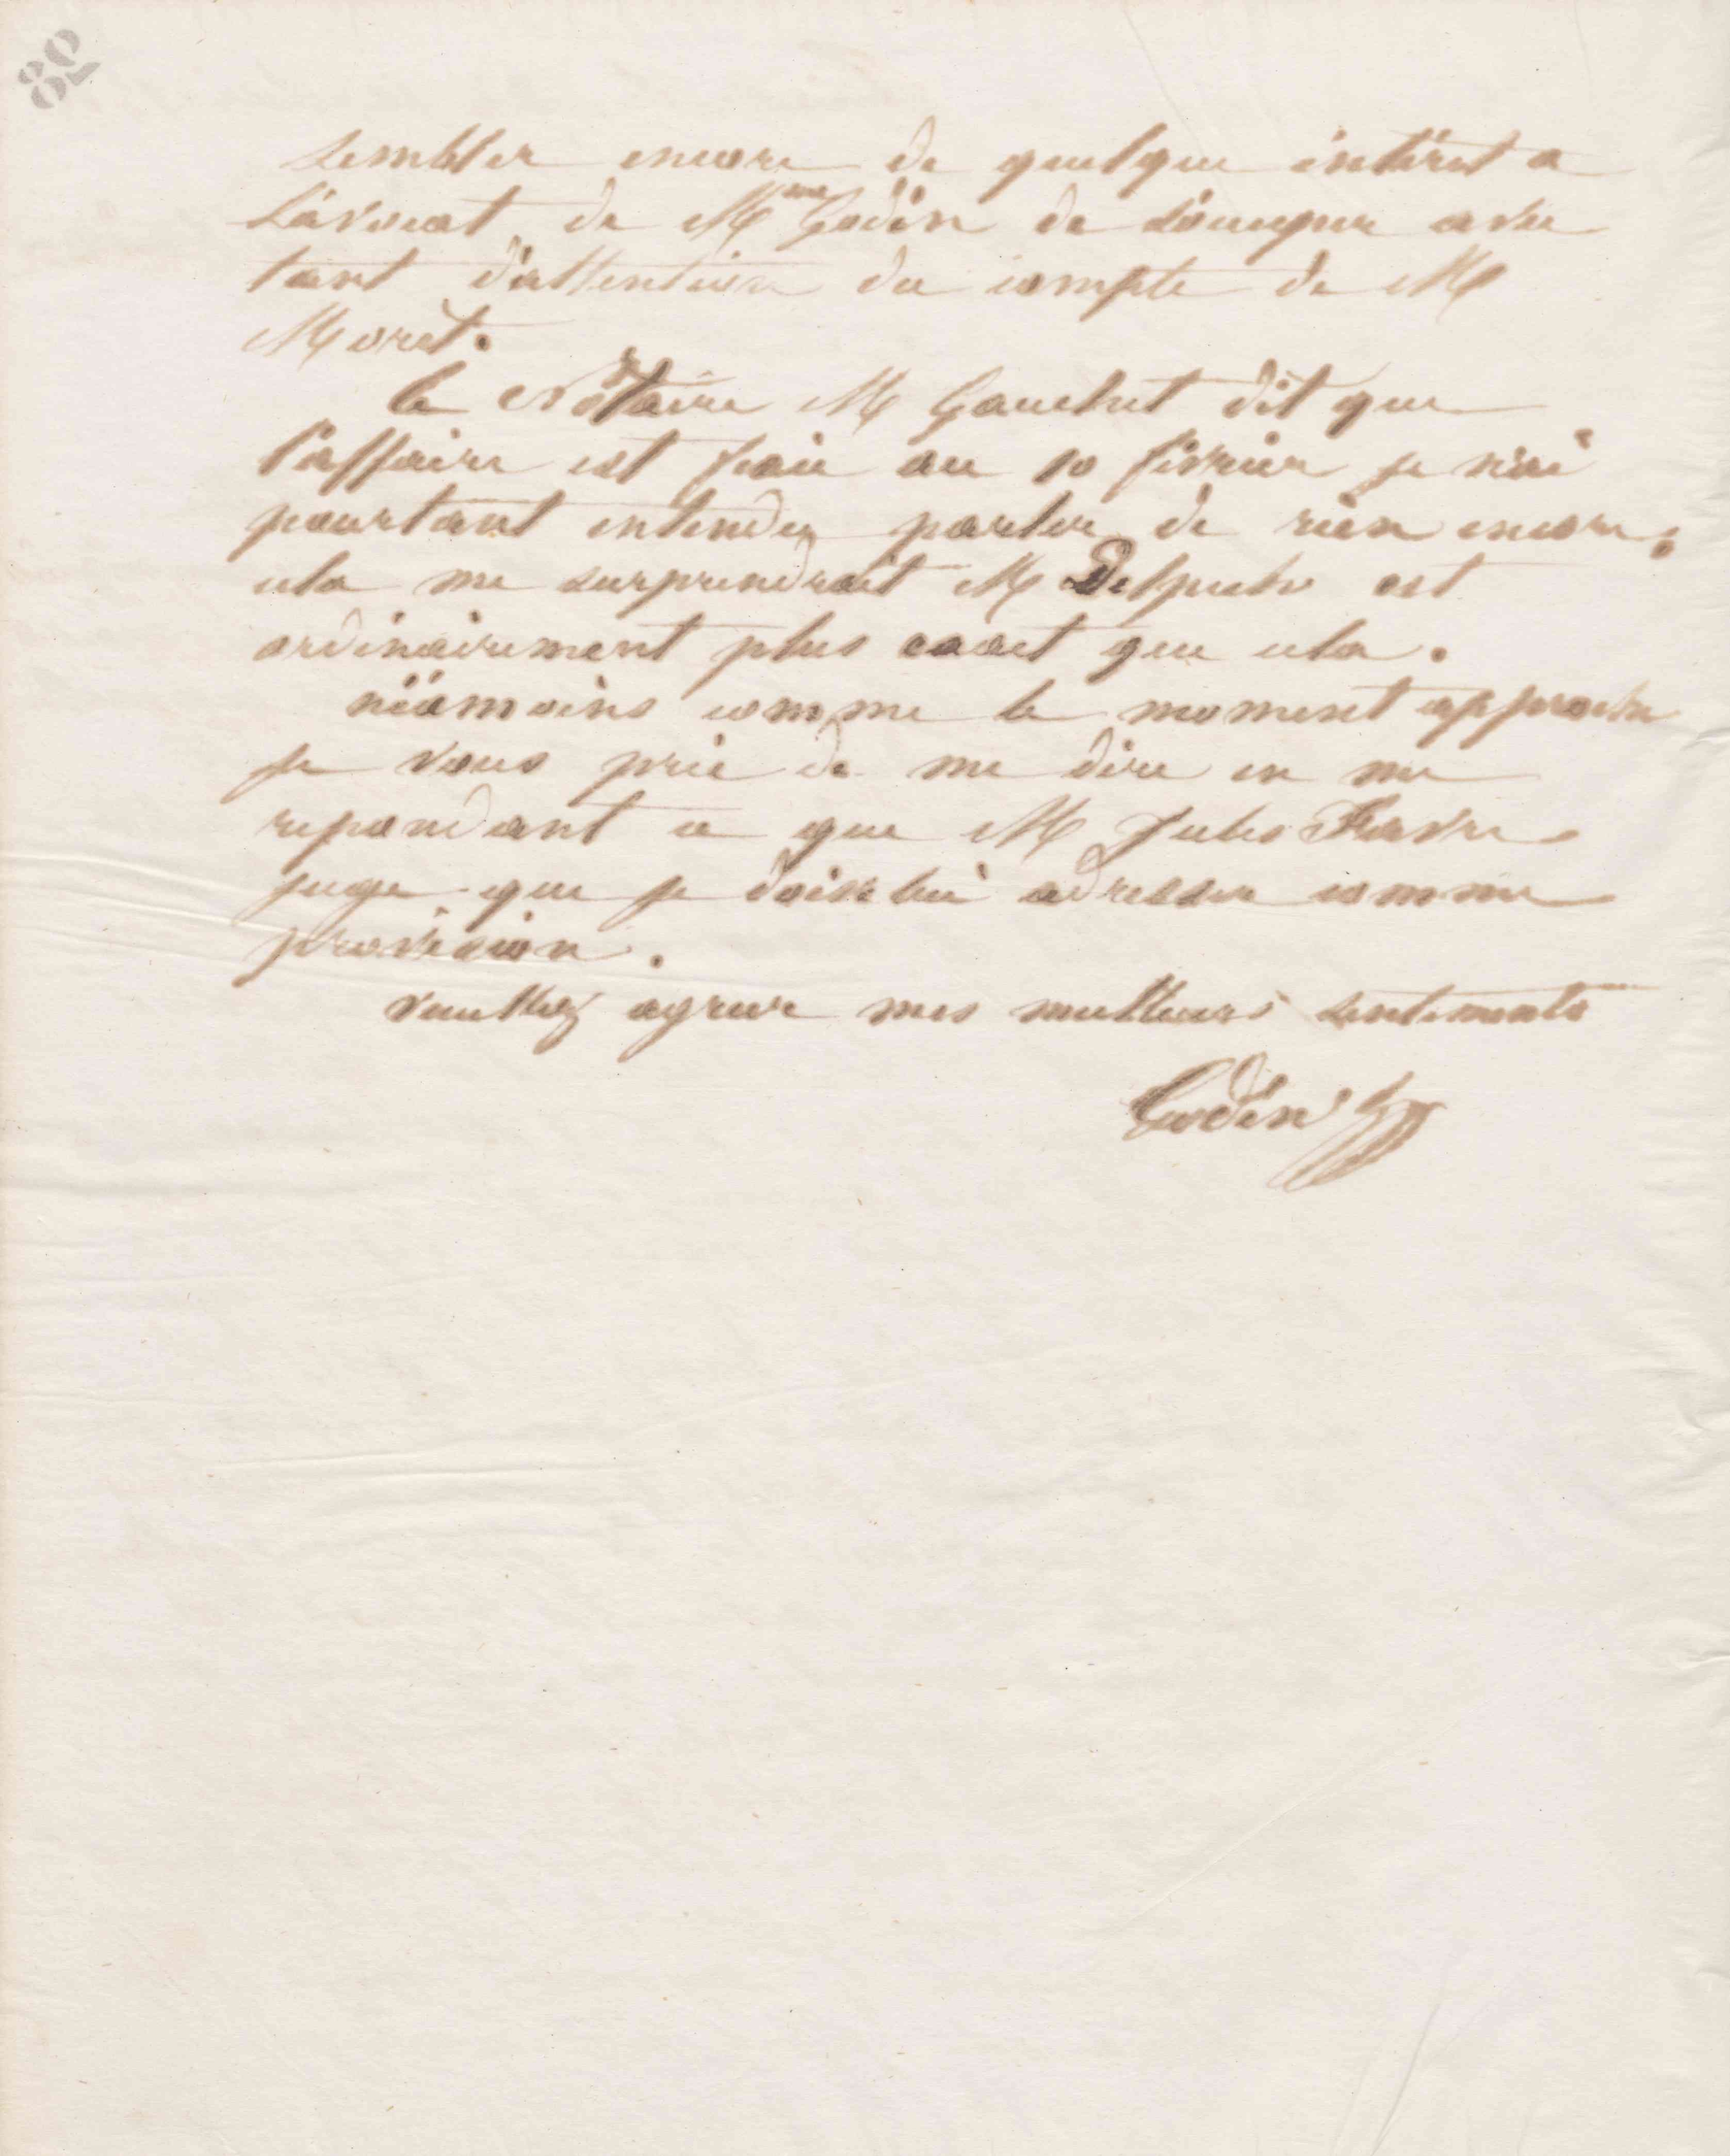 89
sembler encore de quelque intéret a
L'avocat de Mme Godin de s'occuper avec
tant d'attention du compte de M
Moret.
le Notaire M Gauchet dit que
l'affaire est fixée au 10 février je n'ai
pourtant entendu parler de rien encore;
cela me surprendrait M Delpech est
ordinairement plus exact que cela.
néamoins comme le moment approche
je vous prie de me dire en me
repondant ce que M Jules Favre
juge que je doive lui adresser comme
provision.
veuillez agreer mes meilleurs sentiments
Godin